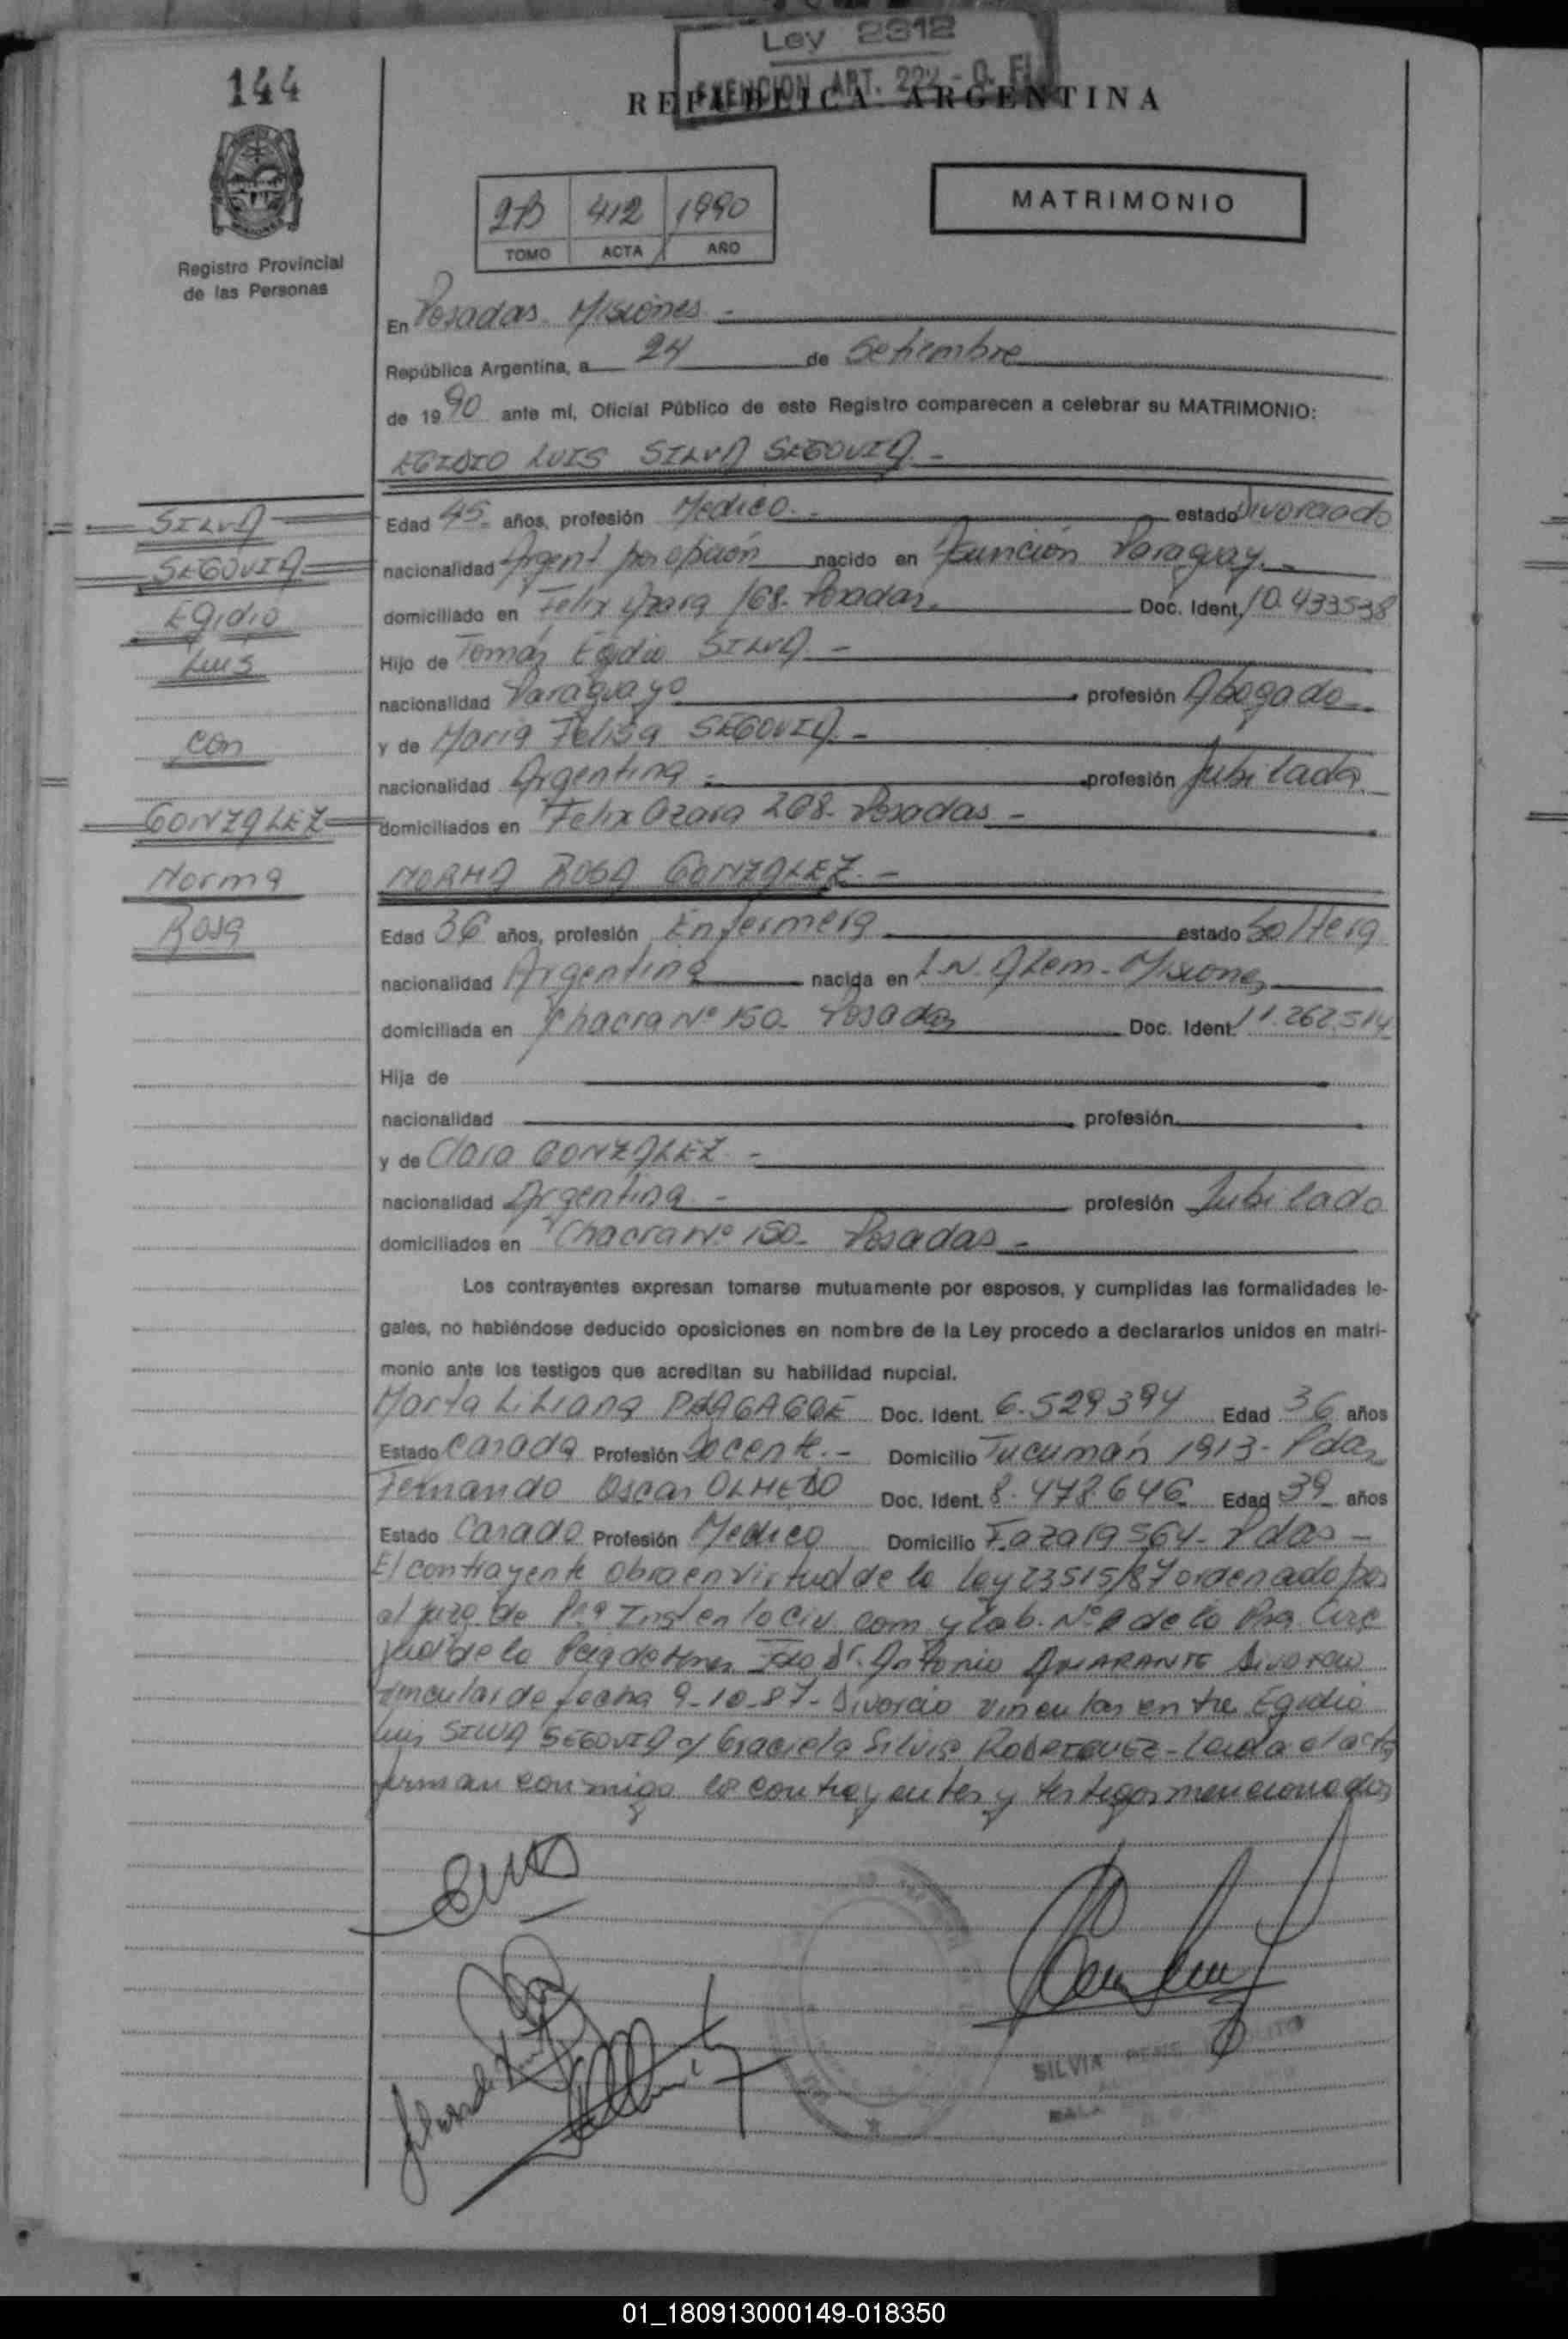 Ley 2312
EXENCION ART. 222 - C. F.
144
REPUBLICA ARGENTINA
MATRIMONIO
2B 412 1990
TOMO ACTA AÑO
Registro Provincial
de las Personas
En Posadas. Misiones -
República Argentina, a 24 de Setiembre
de 1990 ante mí, Oficial Público de este Registro comparecen a celebrar su MATRIMONIO:
EGIDIO LUIS SILVA SEGOVIA. -
SILVA
SEGOVIA
Egidio
Luis
con
GONZALEZ
Norma
Rosa
Edad 45 años, profesión Medico. - estado Divorciado
nacionalidad Argent por opción nacido en Asunción Paraguay. -
domiciliado en Felix Azara 168- Posadas. Doc. Ident. 10.433538
Hijo de Tomás Egidio SILVA. -
nacionalidad Paraguayo profesión Abogado
y de Maria Felisa SEGOVIA. -
nacionalidad Argentina - profesión Jubilada
domiciliados en Felix Azara 268- Posadas -
NORMA ROSA GONZALEZ. -
Edad 36 años, profesión Enfermera estado Soltera
nacionalidad Argentina nacida en L.N. Alem - Misiones
domiciliada en Chacra Nº 150- Posadas Doc. Ident. 11.262.514
Hija de
nacionalidad profesión
y de Clara GONZALEZ -
nacionalidad Argentina - profesión Jubilado
domiciliados en Chacra Nº 150- Posadas -
Los contrayentes expresan tomarse mutuamente por esposos, y cumplidas las formalidades le-
gales, no habiéndose deducido oposiciones en nombre de la Ley procedo a declararlos unidos en matri-
monio ante los testigos que acreditan su habilidad nupcial.
Marta Liliana Doc. Ident. 6.529.394 Edad 36 años
Estado Casada Profesión Docente. - Domicilio Tucumán 1913- Pdas
Fernando Oscar OLMEDO Doc. Ident. 8.478.646 Edad 39 años
Estado Casado Profesión Medico Domicilio F. azara 564- Pdas -
El contrayente obra en virtud de la ley 23515/87 ordenado por
el juzg. de Pra Inst en lo Civ. com y lab. Nº 2 de la Pra. Circ
jud de la Pcia de Mnes Fdo Dr. Antonio AMARANTE Divorcio
vincular de fecha 9-10-87- Divorcio vincular entre Egidio
Luis SILVA SEGOVIA c/ Graciela Silvia RODRIGUEZ - Leida el acta
firman conmigo los contrayentes y testigos mencionados
SILVIA
01_180913000149-018350